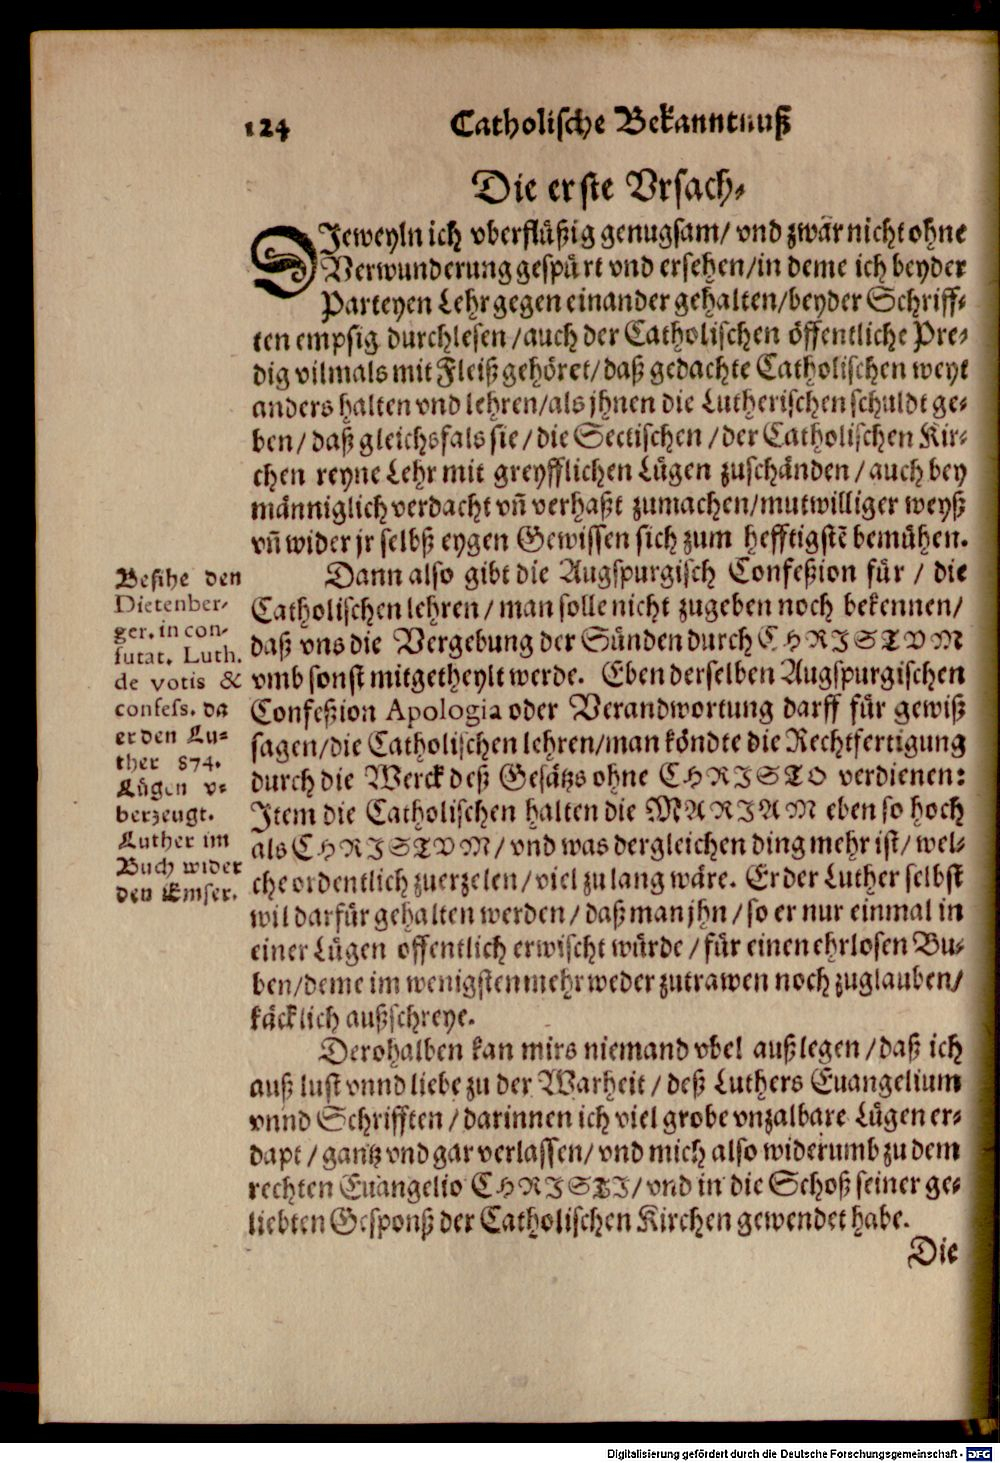 124 Catholische Bekanntnuß
Die erste Vrsach⸗
DJeweyln ich vberflüßig genugsam/ vnd zwar nicht ohne
Verwunderung gespürt vnd ersehen/in deme ich beyder
Parteyen Lehr gegen einander gehalten/beyder Schriff⸗
ten empsig durchlesen/auch der Catholischen öffentliche Pre⸗
dig vilmals mit Fleiß gehöret/daß gedachte Catholischen weyt
anders halten vnd lehren/als jhnen die Lutherischen schuldt ge⸗
ben/daß gleichsfals sie/die Sectischen/der Catholischen Kir⸗
chen reyne Lehr mit greyfflichen Lügen zuschänden/auch bey
männiglich verdacht vñ verhaßt zumachen/mutwilliger weyß
vñ wider jr selbß eygen Gewissen sich zum hefftigstẽ bemühen.
Dann also gibt die Augspurgisch Confeßion für/ die
Catholischen lehren/man solle nicht zugeben noch bekennen/
daß vns die Vergebung der Sünden durch CHRISTVM
vmb sonst mitgetheylt werde. Eben derselben Augspurgischen
Confeßion Apologia oder Verandwortung darff für gewiß
sagen/die Catholischen lehren/man köndte die Rechtfertigung
durch die Werck deß Gesätzs ohne CHRISTO verdienen:
Jtem die Catholischen halten die MARIAM eben so hoch
als CHRISTVM/vnd was dergleichen ding mehr ist/wel⸗
che ordentlich zuerzelen/viel zu lang wäre. Er der Luther selbst
wil darfür gehalten werden/daß man jhn/so er nur einmal in
einer Lügen offentlich erwischt würde/für einen ehrlosen Bu⸗
ben/deme im wenigsten mehr weder zutrawen noch zuglauben/
käcklich außschreye.
Derohalben kan mirs niemand vbel außlegen/daß ich
auß lust vnnd liebe zu der Warheit/deß Luthers Euangelium
vnnd Schrifften/darinnen ich viel grobe vnzalbare Lügen er⸗
dapt/gantz vnd gar verlassen/vnd mich also widerumb zu dem
rechten Euangelio CHRISTI/vnd in die Schoß seiner ge⸗
liebten Gesponß der Catholischen Kirchen gewendet habe.
Die
Besihe den
Dietenber⸗
ger. in con⸗
futat. Luth.
de votis &
confess. da
er den Lu⸗
ther 874.
Lügen v⸗
berzeugt.
Luther im
Buch wider
den Emser.
Digitalisierung gefördert durch die Deutsche Forschungsgemeinschaft - DFG